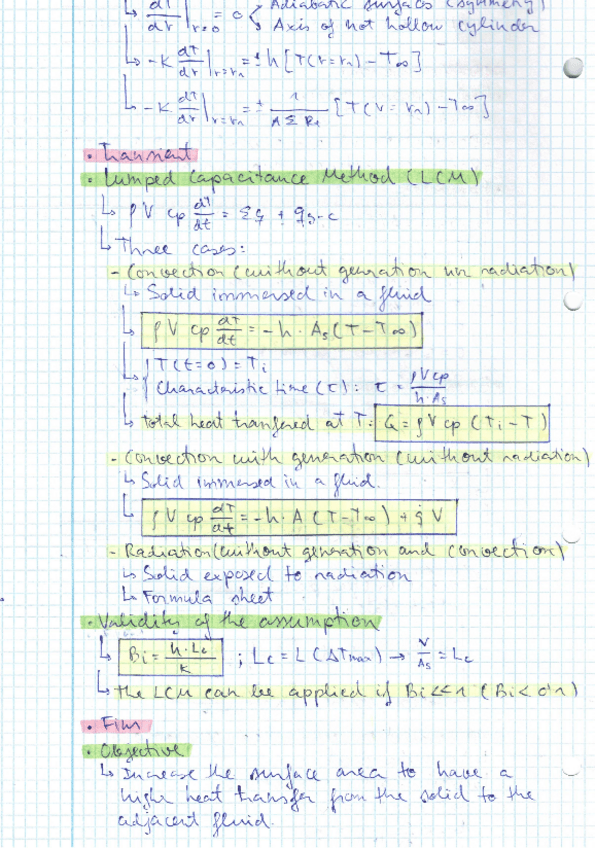 ↳ dT/dr|r=0 = 0 < Adiabatic surfaces (symmetry)
Axis of not hollow cylinder
↳ -K dT/dr|r=rn = ± h [T(r=rn) - T∞]
↳ -K dT/dr|r=rn = ± 1/(A Σ Rt) [T(r=rn) - T∞]
• Transient
• Lumped Capacitance Method (LCM)
↳ ρ V cp dT/dt = Σq + qg-c
↳ Three cases:
- Convection (without generation nn radiation)
↳ Solid immersed in a fluid
↳ ρ V cp dT/dt = -h · As (T - T∞)
↳ { T(t=0) = Ti
Characteristic time (τ): τ = ρVcp/(h·As)
↳ total heat transfered at T: Q = ρ V cp (Ti - T)
- Convection with generation (without radiation)
↳ Solid immersed in a fluid.
↳ ρ V cp dT/dt = -h · A (T - T∞) + q̇ V
- Radiation (without generation and convection)
↳ Solid exposed to radiation
↳ Formula sheet
• Validity of the assumption
↳ Bi = h·Lc/K ; Lc = L (ΔTmax) → V/As = Lc
↳ the LCM can be applied if Bi << 1 (Bi < 0'1)
• Fins
• Objective
↳ Increase the surface area to have a
high heat transfer from the solid to the
adjacent fluid.